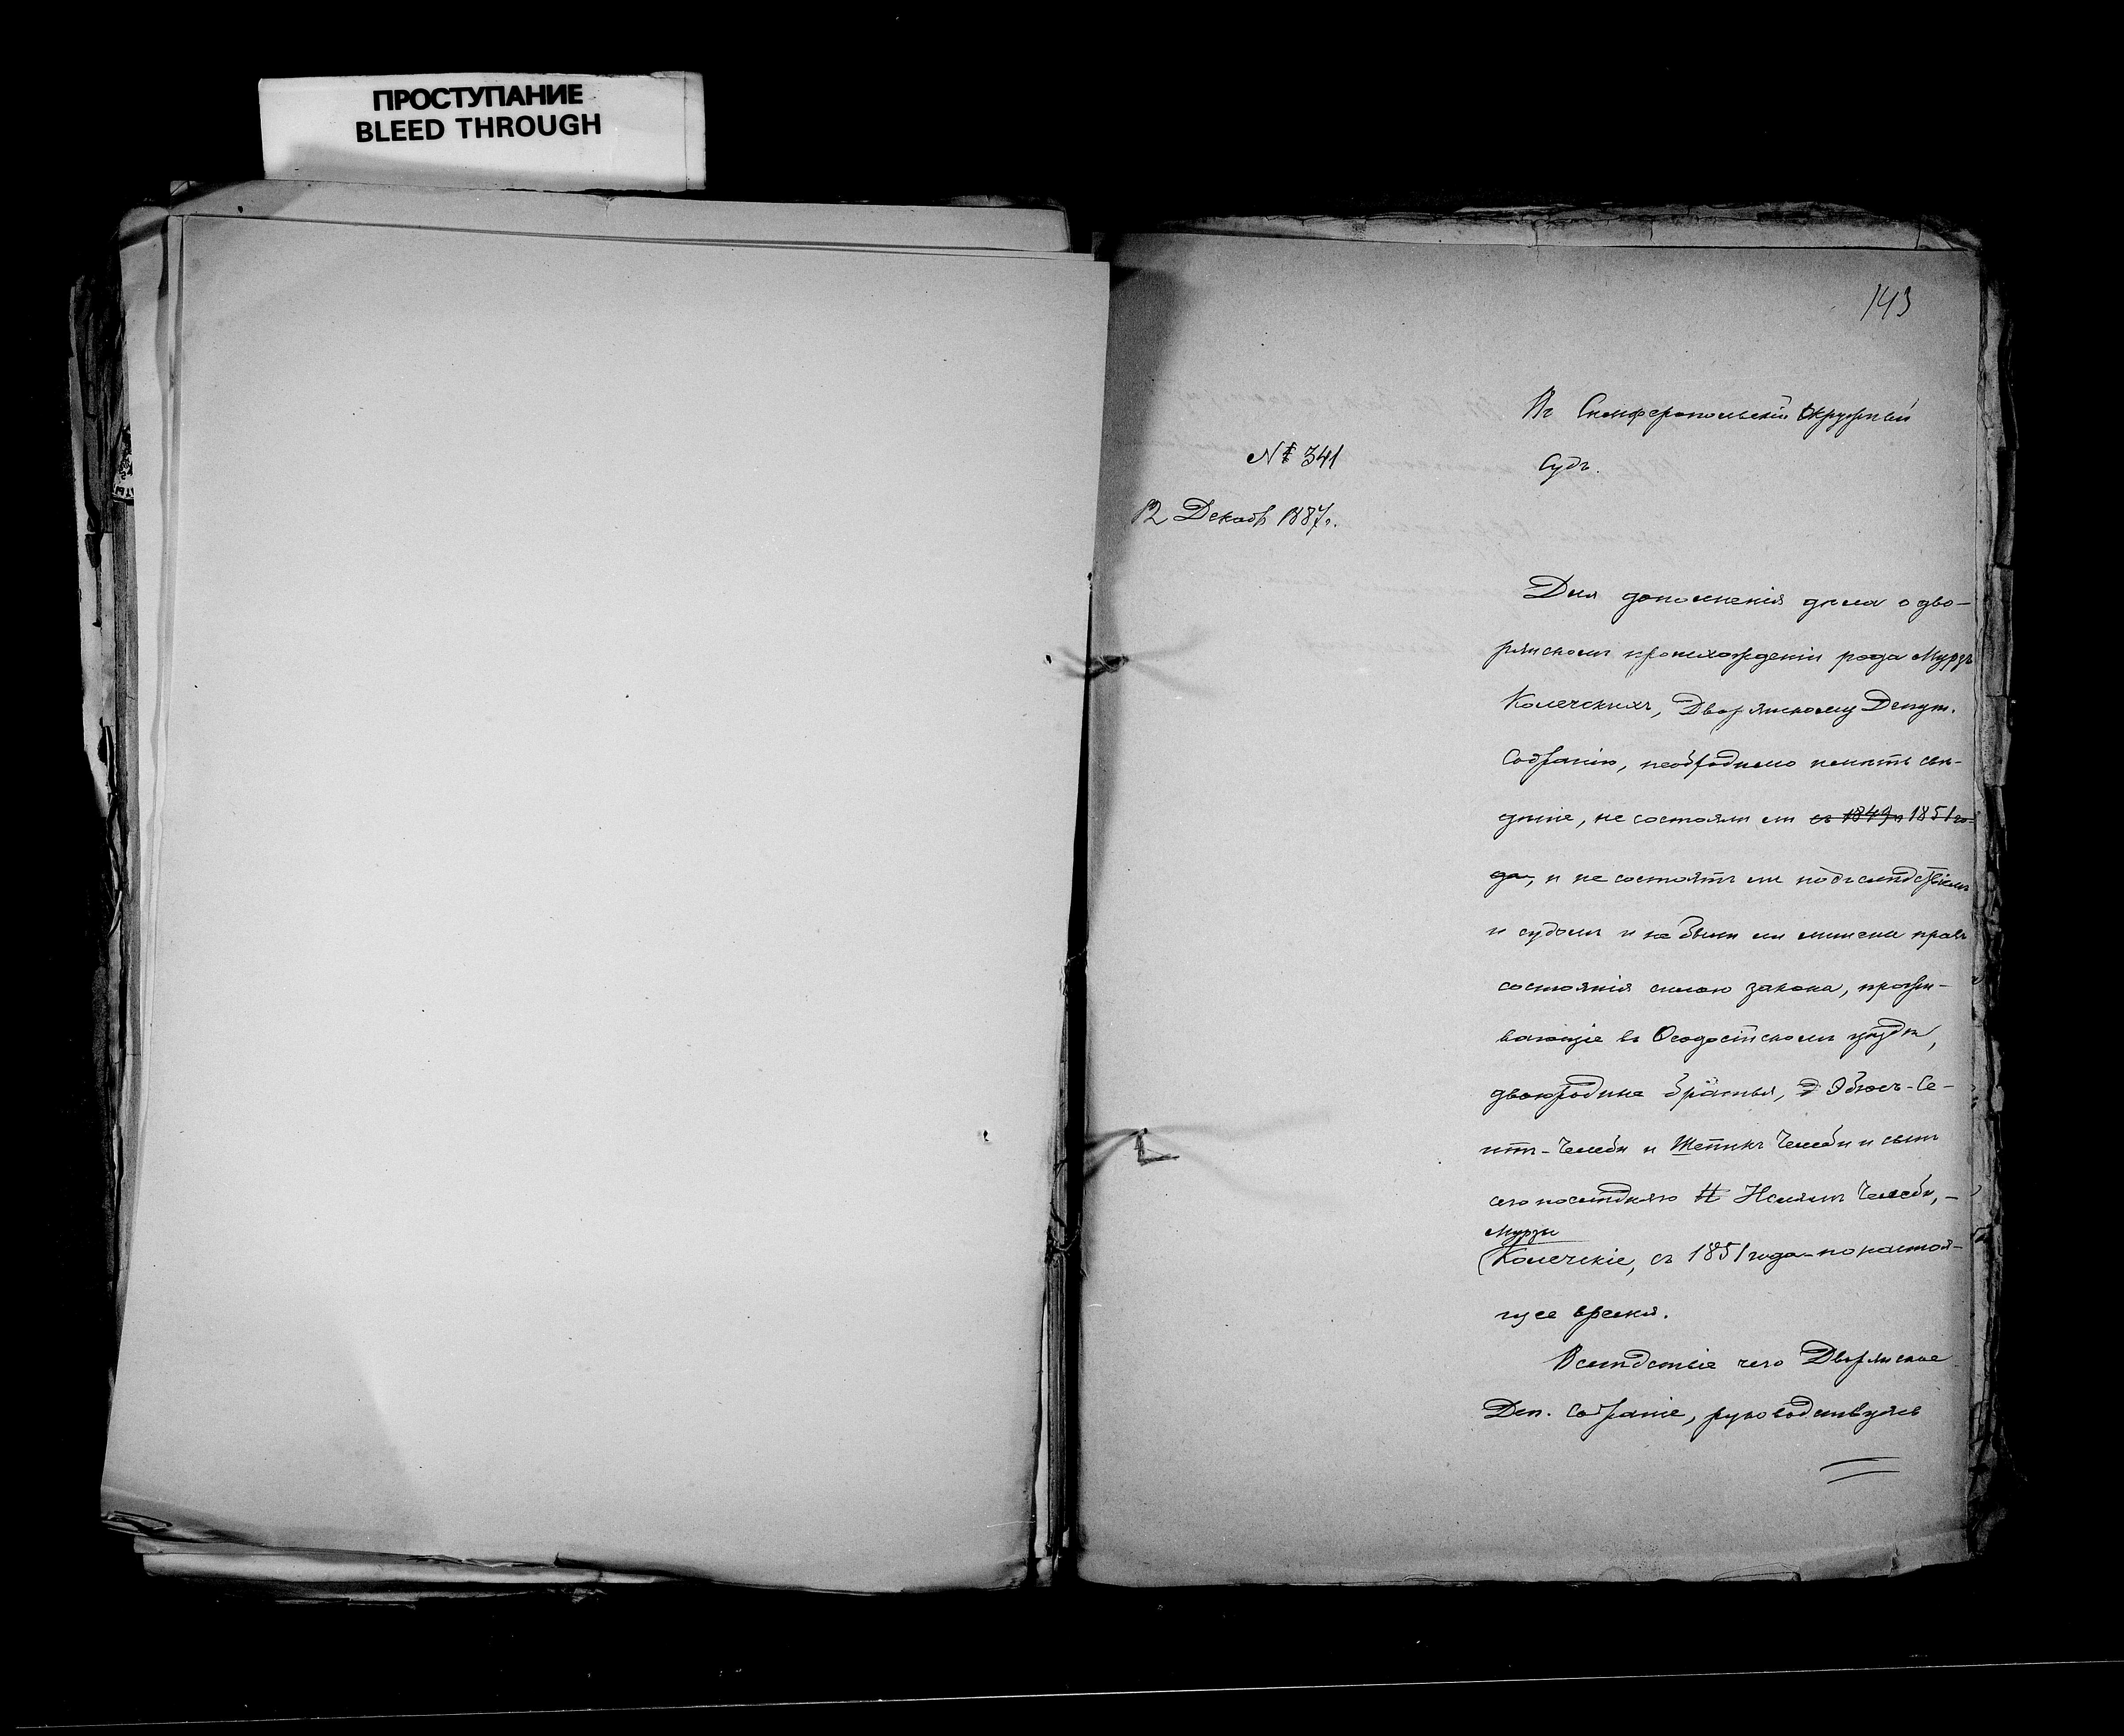 ПРОСТУПАНИЕ
BLEED THROUGH
143
Въ Симферопольскій Окружный
Судъ.
№ 341
12 Декабр 1887 г.
Для дополненія дѣла о дво-
рянскомъ происхожденіи рода Мурзъ
Колечскихъ, Дворянскому Депут.
Собранію, необходимо имѣть свѣ-
дѣніе, не состояли ли съ 1849 и 1851 го-
да, и не состоятъ ли подъ слѣдствіемъ
и судомъ и не были ли лишены правъ
состоянія силою закона, прожи-
вающіе въ Ѳеодосійскомъ уѣздѣ,
двоюродные братья, Э Эбюсъ-Се-
итъ-Челеби и Шеикъ Челеби и сынъ
сего послѣдняго И Ислямъ Челеби,-
Мурзы
Колечскіе, съ 1851 года по настоя-
щее время.
Вслѣдствіе чего Дворянское
Деп. Собраніе, руководствуясь